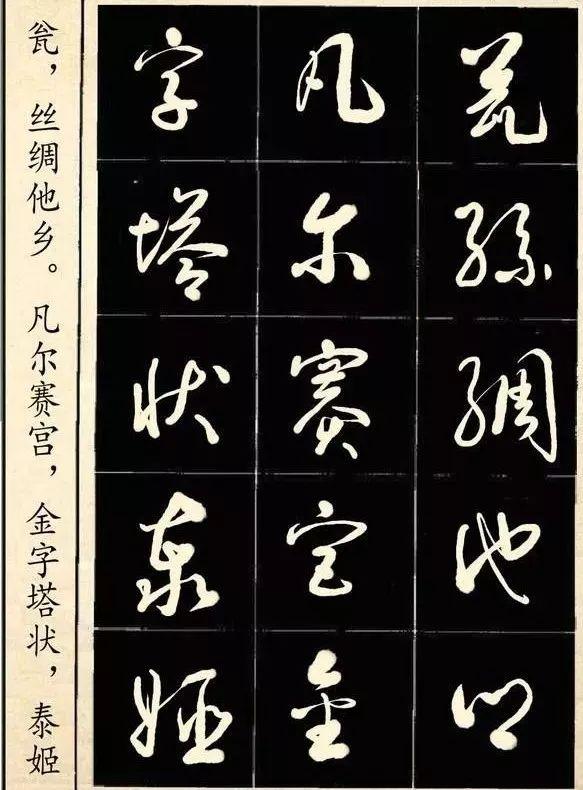 瓮絲綢他鄉
凡尔賽宫金
字塔状泰姬
瓮，丝绸他乡。凡尔赛宫，金字塔状，泰姬